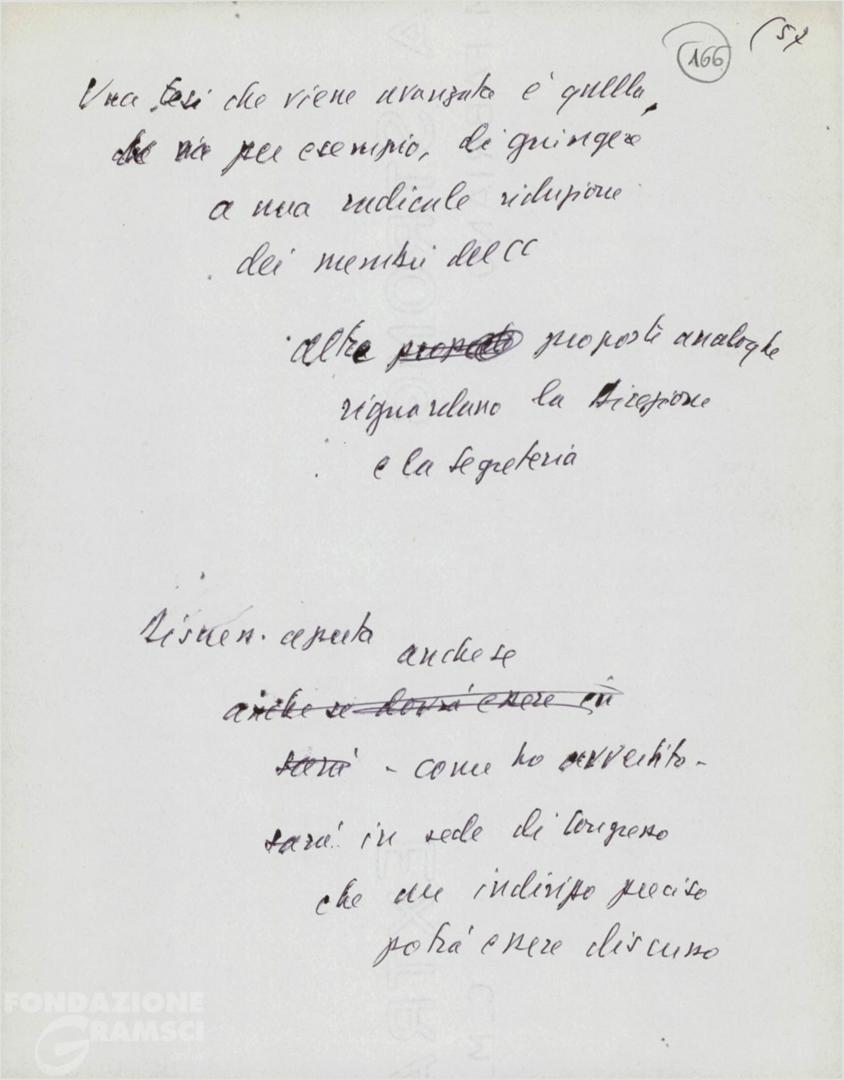 166
(57
Una tesi che viene avanzata è quella,
per esempio, di giungere
a una radicale riduzione
dei membri del CC
altre proposte analoghe
riguardano la Direzione
e la segreteria
Discuss. aperta
anche se
anche se dovrà essere in
sarà - come ho avvertito -
sarà in sede di Congresso
che un indirizzo preciso
potrà essere discusso
FONDAZIONE
GRAMSCI